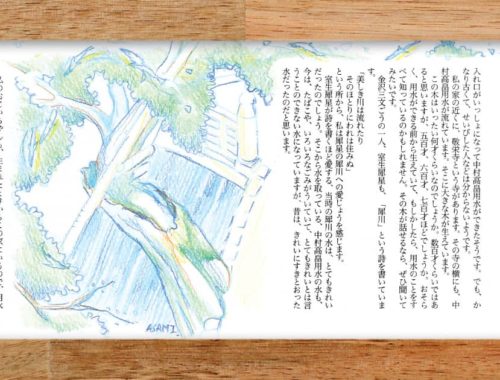 入れ口がいっしょになって中村高畠用水ができたそうです。でも、か
なり古くて、せいびした人などは分からないようです。
私の家の近くに、敬栄寺という寺があります。その寺の横にも、中
村高畠用水が流れています。そこに大きな木が生えています。
この木はいったい何才くらいなのでしょうか。数百才くらいではあ
ると思いますが、五百才、六百才、七百才ほどでしょうか、おそら
く、用水ができる前から生えていて、もしかしたら、用水のことをす
べて知っているのかもしれません。その木が話せるなら、ぜひ聞いて
みたいです。
金沢三文ごうの一人、室生犀星も、「犀川」という詩を書いていま
す。
「美しき川は流れたり
そのほとりにわれは住みぬ」
という所から、私は犀星の犀川への愛じょうを感じます。
室生犀星が詩を書くほど愛する、当時の犀川の水は、とてもきれい
だったのでしょう。そこから水を取っている、中村高畠用水の水も、
今は、たばこや、いろいろなごみがういていて、とてもきれいとは言
うことのできない水になっていますが、昔は、きれいにすきとおった
水だったのだと思います。
ASAMI